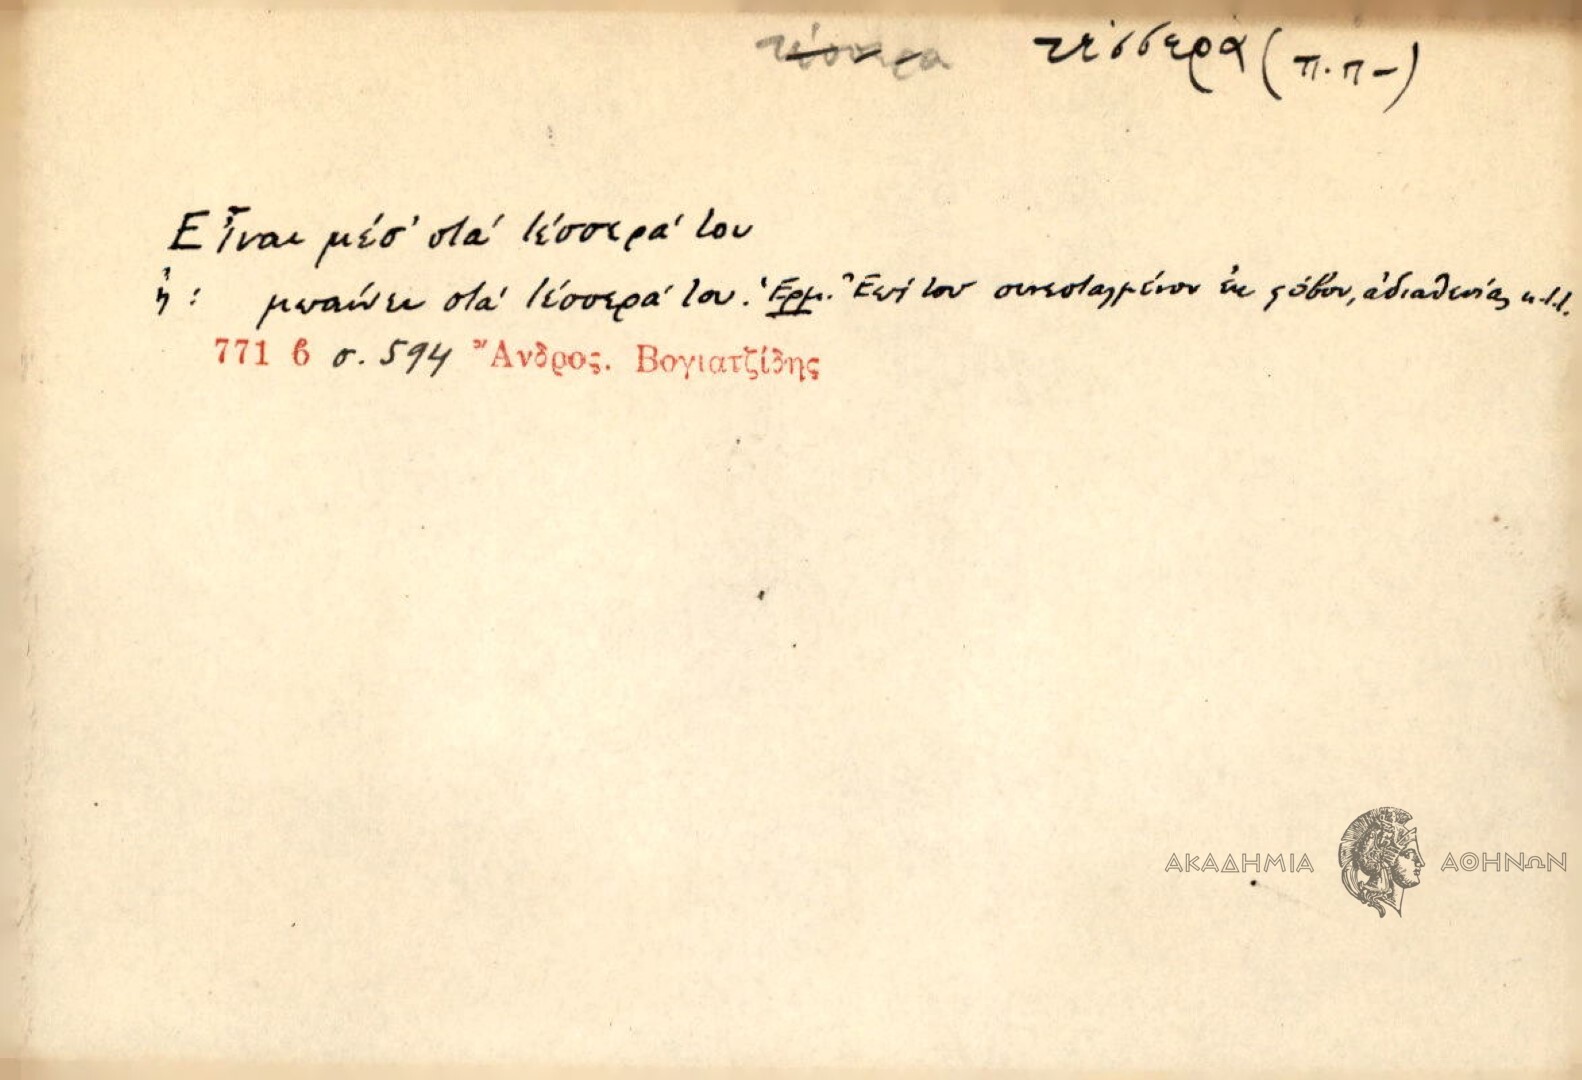 τέσσερα τέσσερα (π.π-)
Εἶναι μέσ' στά τέσσερά του
ἤ: μπαίνει στά τέσσερά του. Ἑρμ. Ἐπί τοῦ συνεσταλμένου ἐκ φόβου, ἀδιαθεσίας κ.τ.τ.
771 6 σ. 594 Ἄνδρος. Βογιατζίδης
ΑΚΑΔΗΜΙΑ ΑΘΗΝΩΝ